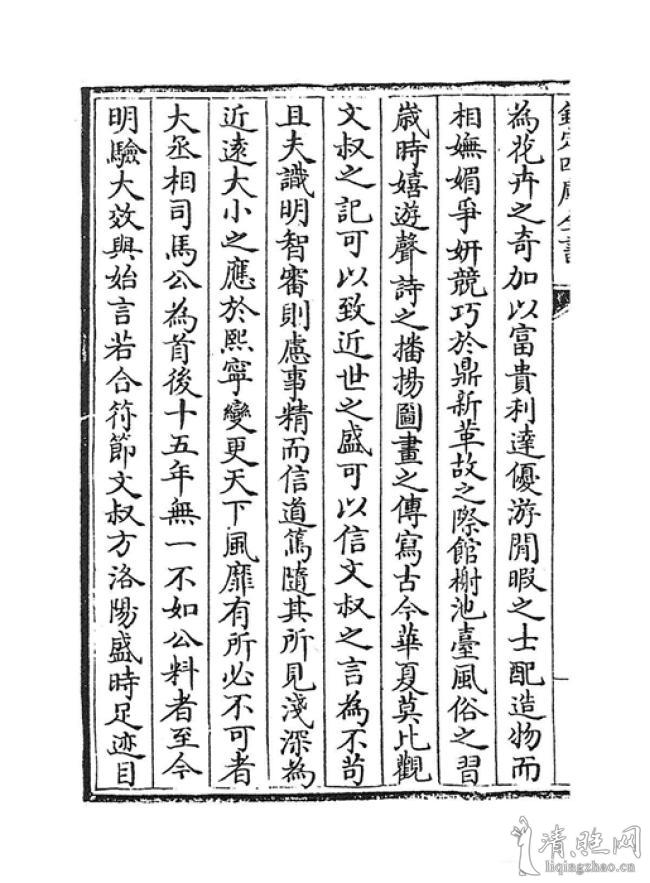 欽定四庫全書
為花卉之奇加以富貴利達優游閒暇之士配造物而
相嫵媚爭妍競巧於鼎新革故之際館榭池臺風俗之習
歳時嬉遊聲詩之播揚圖畫之傳寫古今華夏莫比觀
文叔之記可以致近世之盛可以信文叔之言為不苟
且夫識明智審則慮事精而信道篤隨其所見淺深為
近遠大小之應於熙寧變更天下風靡有所必不可者
大丞相司馬公為首後十五年無一不如公料者至今
明驗大效與始言若合符節文叔方洛陽盛時足迹目
清照网
liqingzhao.cn